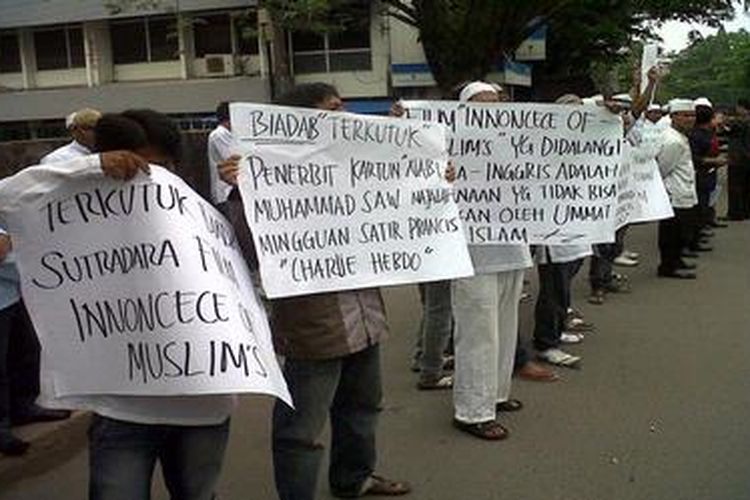 TERKUTUK
SUTRADARA FILM
INNONCECE OF
MUSLIM'S
BIADAB "TERKUTUK"
PENERBIT KARTUN "NABI
MUHAMMAD SAW
MINGGUAN SATIR PRANCIS
"CHARLIE HEBDO"
FILM "INNONCECE OF
"YG DIDALANGI
- INGGRIS ADALAH
YG TIDAK BISA
OLEH UMMAT
ISLAM